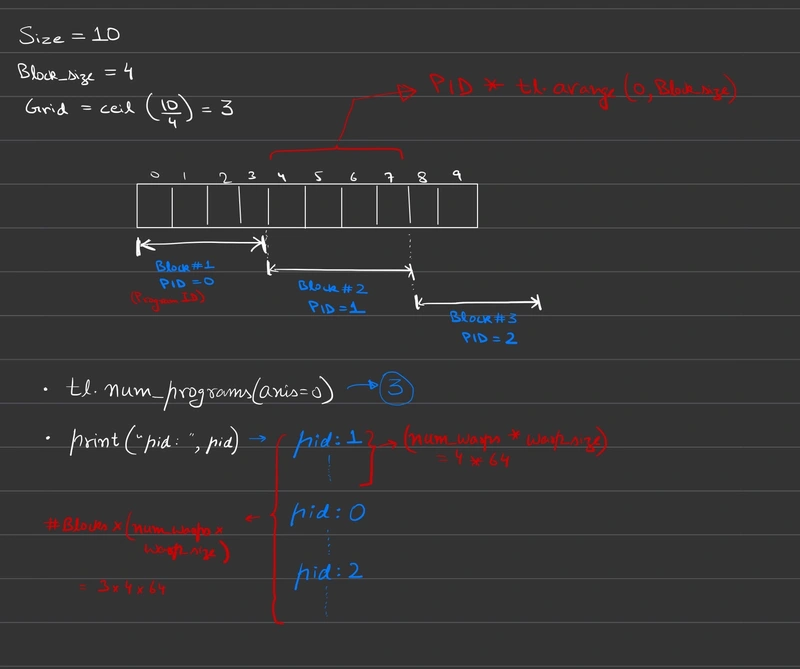 Size = 10
Block_size = 4
Grid = ceil (10/4) = 3
PID * tl.arange (0, Block_size)
0 1 2 3 4 5 6 7 8 9
Block#1
PID = 0
(Program ID)
Block#2
PID = 1
Block#3
PID = 2
• tl.num_programs(axis=0) → 3
• print("pid:", pid) → pid: 1 → (num_warps * warp_size)
= 4 * 64
pid: 0
#Blocks × (num_warps ×
warp_size)
= 3 × 4 × 64
pid: 2